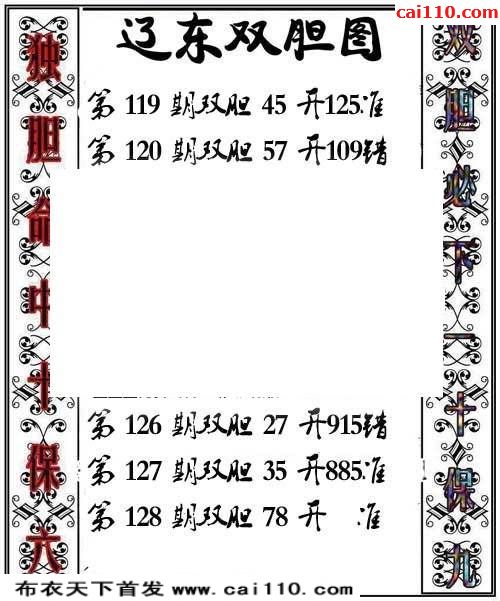 cai110.com
辽东双胆图
独胆命中十保六
双胆必下一十保九
第 119 期双胆 45 开125准
第 120 期双胆 57 开109错
第 126 期双胆 27 开915错
第 127 期双胆 35 开885准
第 128 期双胆 78 开 准
布衣天下首发 www.cai110.com